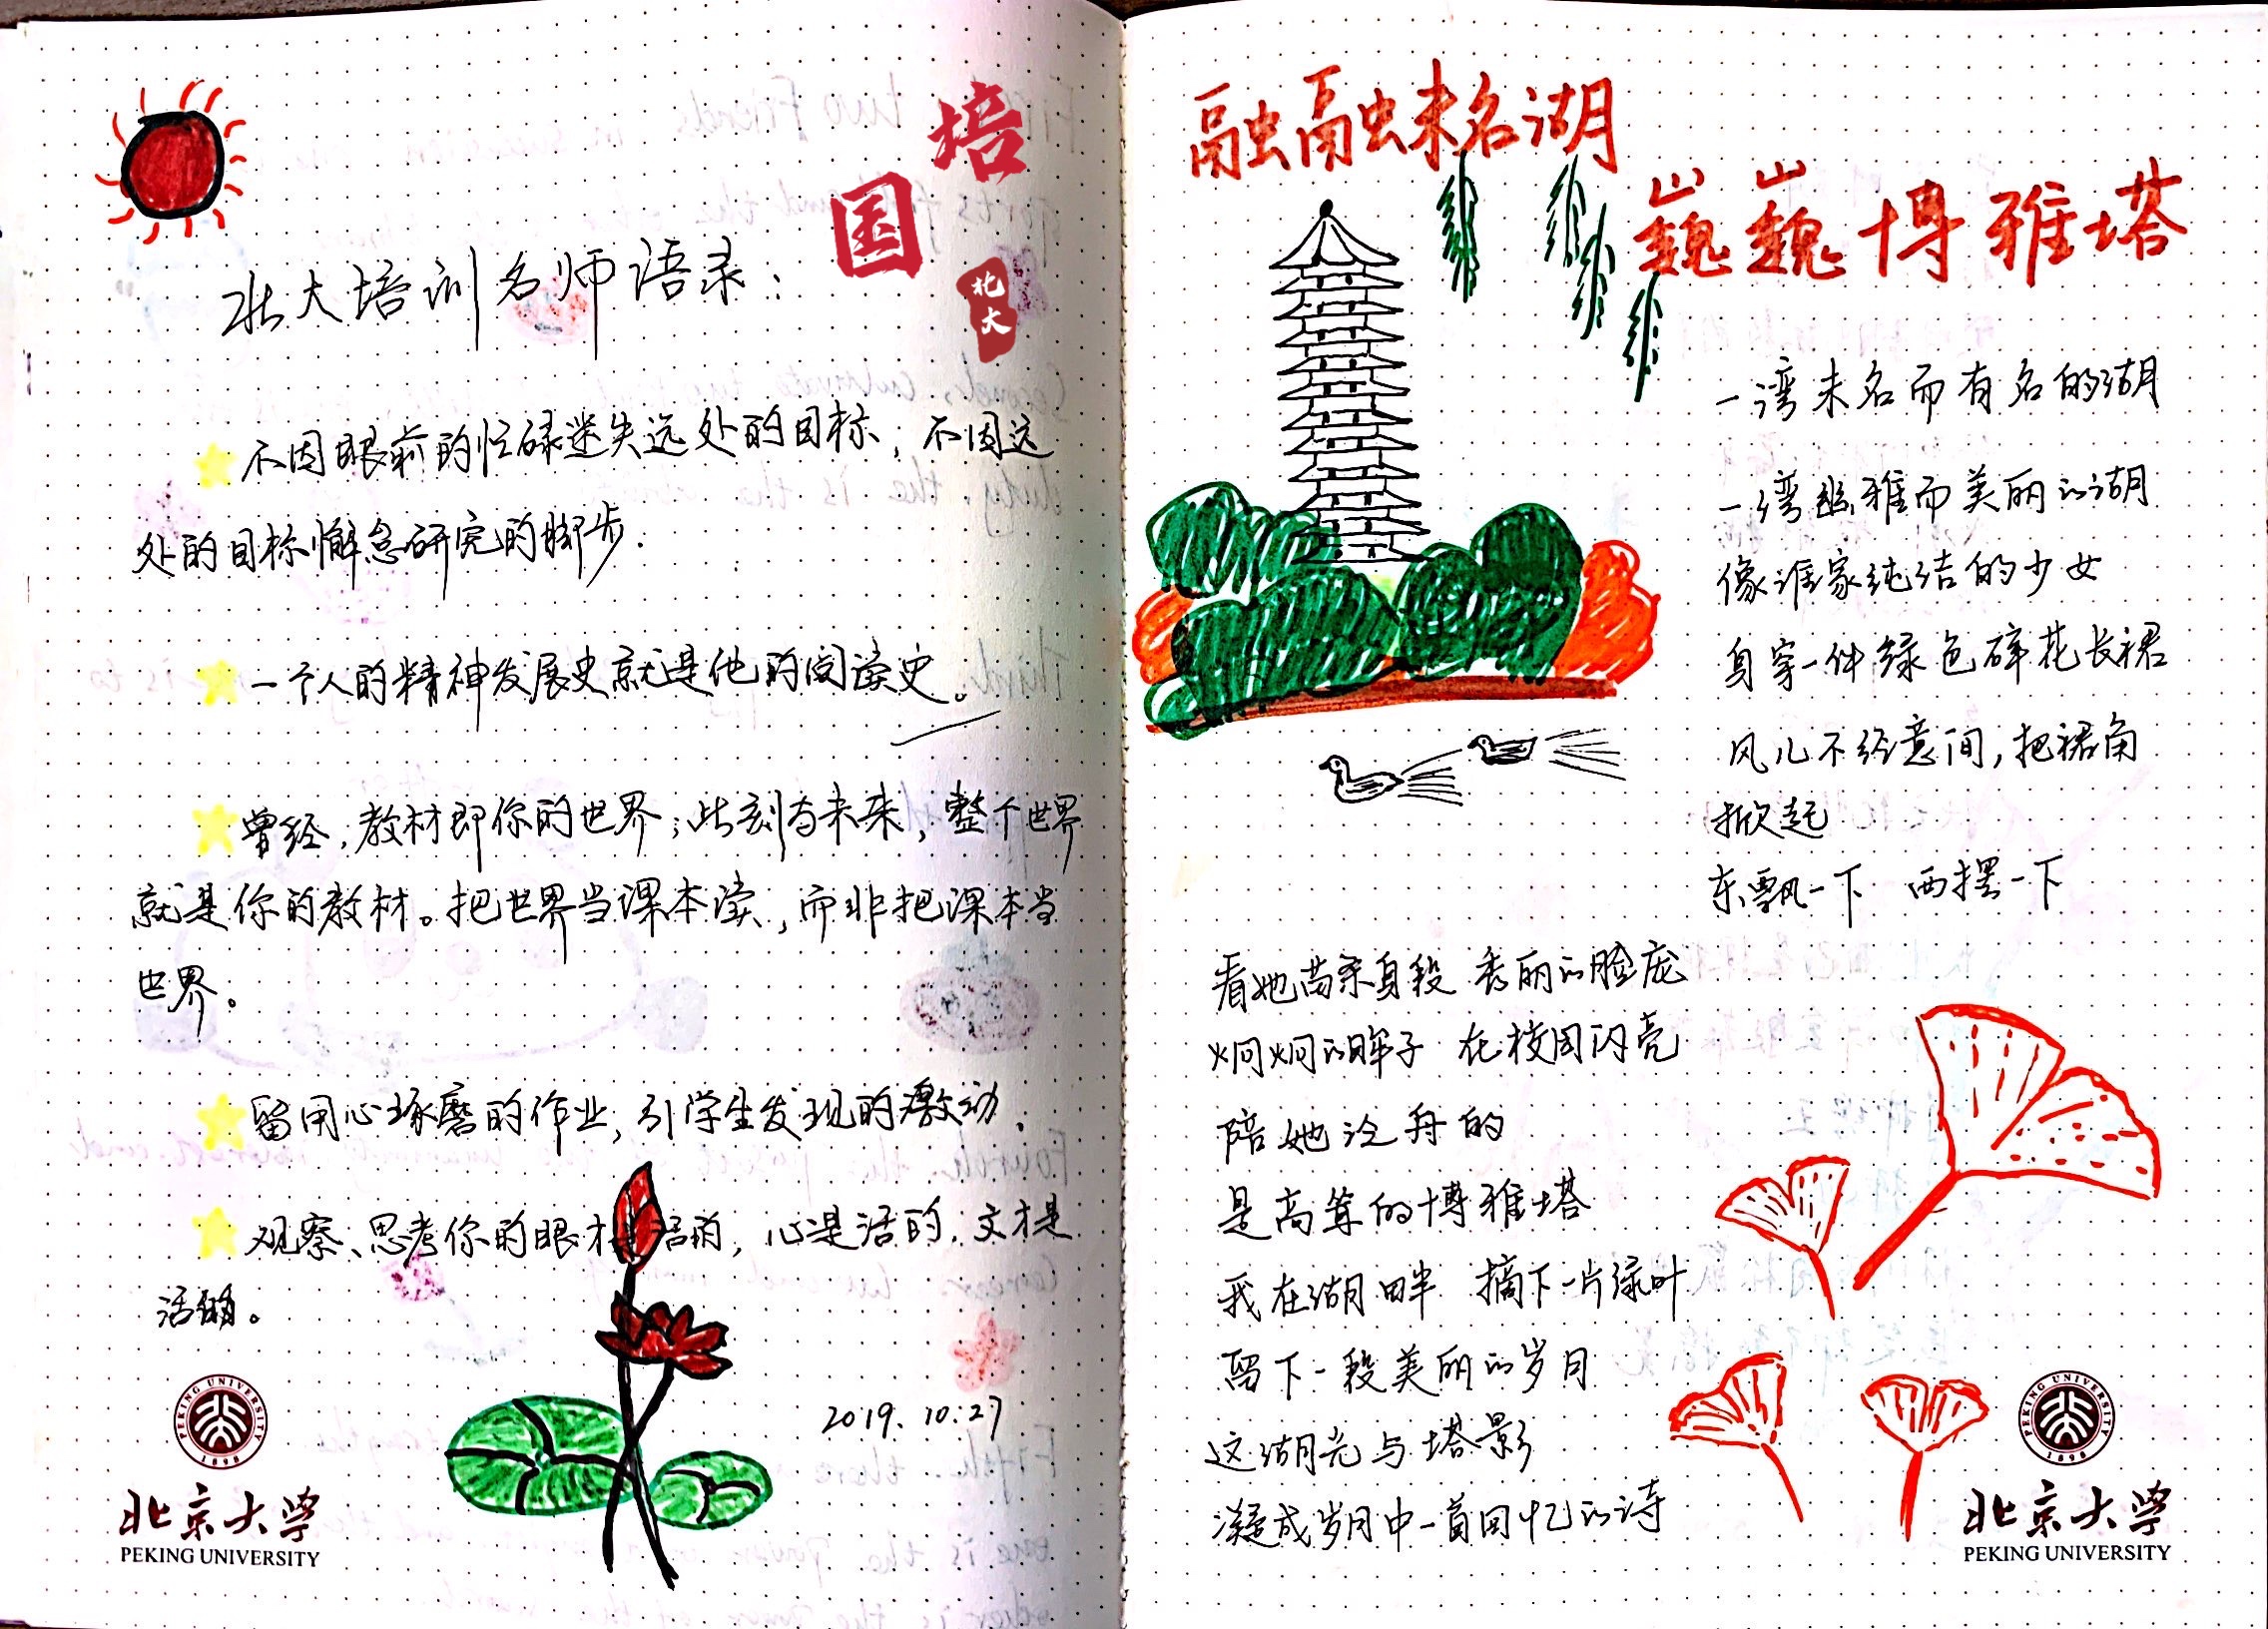 国培
北大
北大培训名师语录：
不因眼前的忙碌迷失远处的目标，不因远
处的目标懈怠研究的脚步.
一个人的精神发展史就是他的阅读史。
曾经，教材即你的世界；此刻与未来，整个世界
就是你的教材。把世界当课本读，而非把课本当
世界。
留用心琢磨的作业，引学生发现的激动.
观察、思考你的眼才是活的，心是活的，文才是
活的。
2019.10.27
PEKING UNIVERSITY
1898
北京大学
PEKING UNIVERSITY
融融未名湖
巍巍博雅塔
一湾未名而有名的湖
一湾幽雅而美丽的湖
像谁家纯洁的少女
身穿一件绿色碎花长裙
风儿不经意间，把裙角
掀起
东飘一下 西摆一下
看她苗条身段 秀丽的脸庞
炯炯的眸子 在校园闪亮
陪她泛舟的
是高耸的博雅塔
我在湖畔 摘下一片绿叶
留下一段美丽的岁月
这湖光与塔影
凝成岁月中一首回忆的诗
PEKING UNIVERSITY
1898
北京大学
PEKING UNIVERSITY